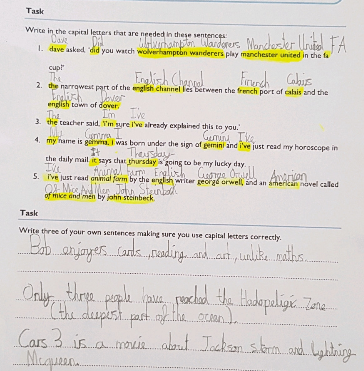 Task
Write in the capital letters that are needed in these sentences:
Dave Did Wolverhampton Wanderers Manchester United FA
1. dave asked, 'did you watch wolverhampton wanderers play manchester united in the fa
cup?'
The English Channel French Calais
2. the narrowest part of the english channel lies between the french port of calais and the
English Dover
english town of dover.
The Im Ive
3. the teacher said, 'i'm sure i've already explained this to you.'
My Gemma I Gemini I've
4. my name is gemma, i was born under the sign of gemini and i've just read my horoscope in
It Thursday
the daily mail. it says that thursday is going to be my lucky day.
I've Animal Farm English George Orwell American
5. i've just read animal farm by the english writer george orwell, and an american novel called
Of Mice And Men John Steinbeck
of mice and men by john steinbeck.
Task
Write three of your own sentences making sure you use capital letters correctly.
Bob enjoyers cards, reading and art, unlike maths.
Only three people have reached the Hadopeligic Zone
(the deepest part of the ocean).
Cars 3 is a movie about Jackson storm and lightning
Mcqueen.